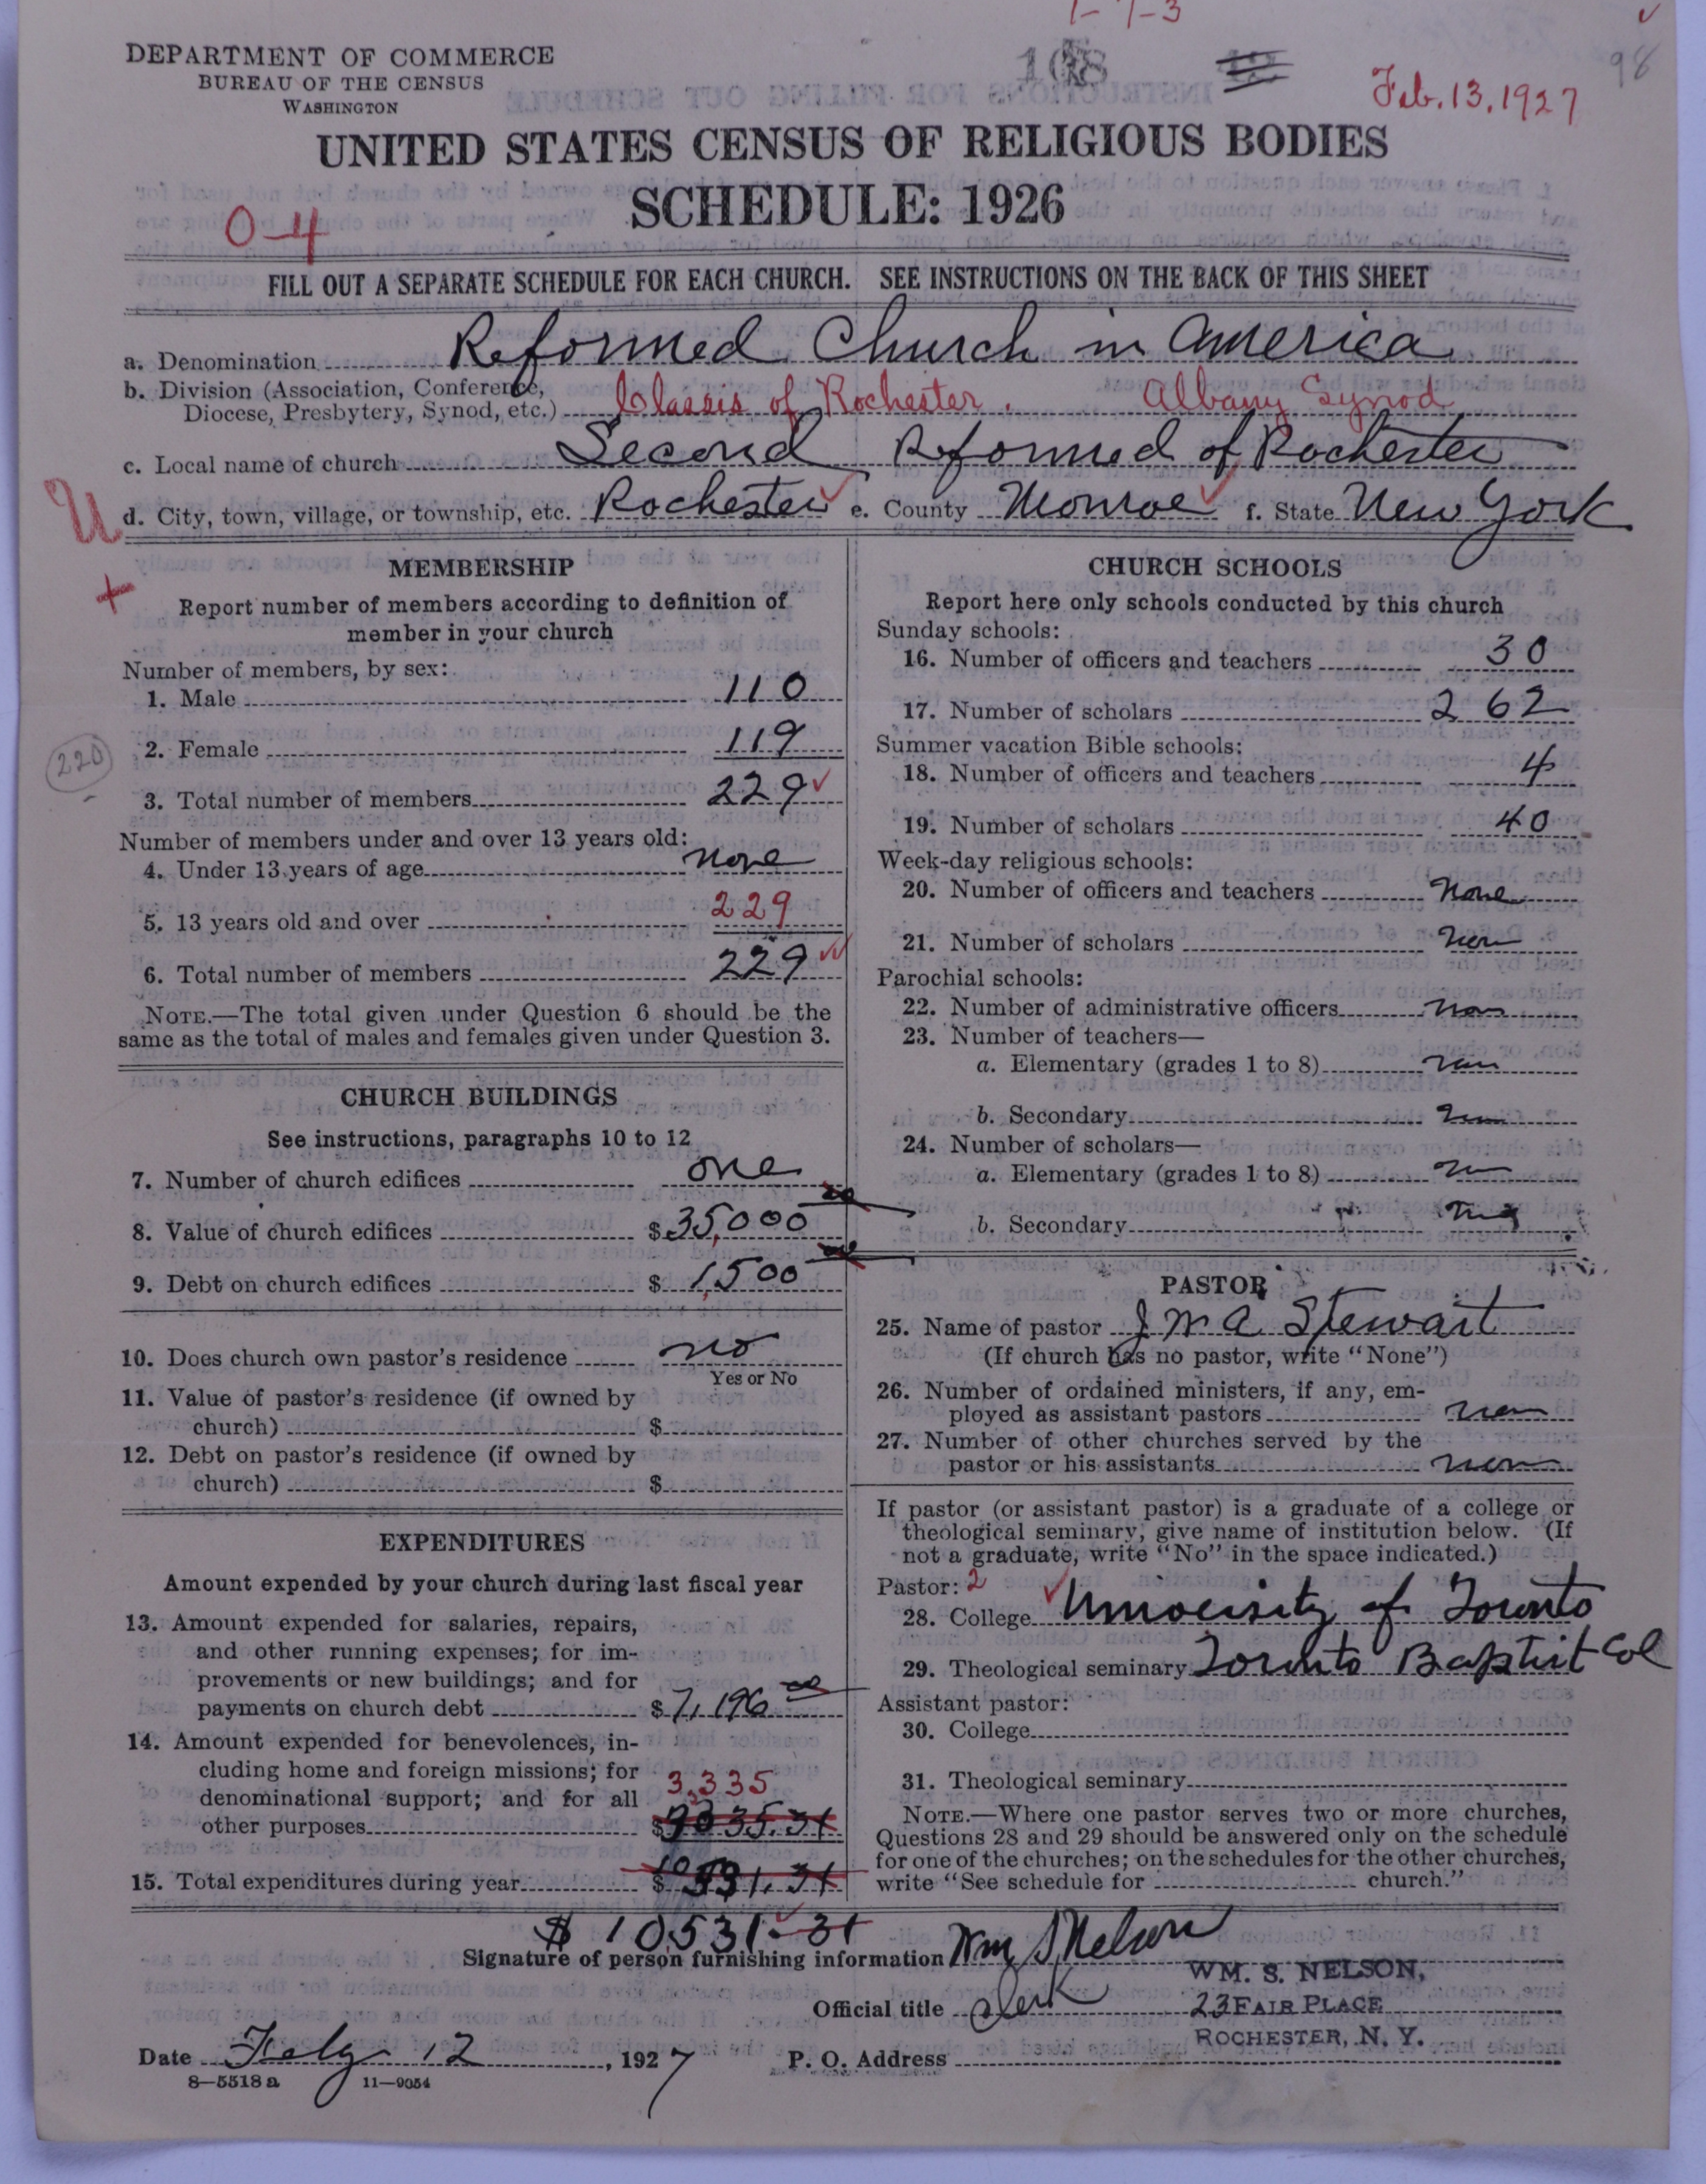 1-7-3
DEPARTMENT OF COMMERCE
BUREAU OF THE CENSUS
WASHINGTON
108
98
Feb. 13, 1927
UNITED STATES CENSUS OF RELIGIOUS BODIES
SCHEDULE: 1926
0-4
FILL OUT A SEPARATE SCHEDULE FOR EACH CHURCH. SEE INSTRUCTIONS ON THE BACK OF THIS SHEET
a. Denomination Reformed Church in America
b. Division (Association, Conference,
Diocese, Presbytery, Synod, etc.) Classis of Rochester. Albany Synod
c. Local name of church Second Reformed of Rochester
U
d. City, town, village, or township, etc. Rochester e. County Monroe f. State New York
MEMBERSHIP
Report number of members according to definition of
member in your church
Number of members, by sex:
1. Male 110
2. Female 119
220
3. Total number of members 229
Number of members under and over 13 years old:
4. Under 13 years of age none
5. 13 years old and over 229
6. Total number of members 229
NOTE.—The total given under Question 6 should be the
same as the total of males and females given under Question 3.
CHURCH BUILDINGS
See instructions, paragraphs 10 to 12
7. Number of church edifices one
8. Value of church edifices $35,000
9. Debt on church edifices $1,500
10. Does church own pastor's residence no
Yes or No
11. Value of pastor's residence (if owned by
church) $
12. Debt on pastor's residence (if owned by
church) $
EXPENDITURES
Amount expended by your church during last fiscal year
13. Amount expended for salaries, repairs,
and other running expenses; for im-
provements or new buildings; and for
payments on church debt $7,196 00
14. Amount expended for benevolences, in-
cluding home and foreign missions; for
denominational support; and for all 3,335
other purposes $3335.31
15. Total expenditures during year $
$10531-31
CHURCH SCHOOLS
Report here only schools conducted by this church
Sunday schools:
16. Number of officers and teachers 30
17. Number of scholars 262
Summer vacation Bible schools:
18. Number of officers and teachers 4
19. Number of scholars 40
Week-day religious schools:
20. Number of officers and teachers None
21. Number of scholars non
Parochial schools:
22. Number of administrative officers non
23. Number of teachers—
a. Elementary (grades 1 to 8) non
b. Secondary
24. Number of scholars—
a. Elementary (grades 1 to 8)
b. Secondary
PASTOR
25. Name of pastor J M A Stewart
(If church has no pastor, write "None")
26. Number of ordained ministers, if any, em-
ployed as assistant pastors non
27. Number of other churches served by the
pastor or his assistants non
If pastor (or assistant pastor) is a graduate of a college or
theological seminary, give name of institution below. (If
not a graduate, write "No" in the space indicated.)
Pastor: 2
28. College University of Toronto
29. Theological seminary Toronto Baptist Col
Assistant pastor:
30. College
31. Theological seminary
NOTE.—Where one pastor serves two or more churches,
Questions 28 and 29 should be answered only on the schedule
for one of the churches; on the schedules for the other churches,
write "See schedule for church."
Signature of person furnishing information Wm S Nelson
WM. S. NELSON,
Official title Clerk
23 FAIR PLACE
ROCHESTER, N. Y.
Date Feby 12, 1927
P. O. Address
8—5518 a 11—9054